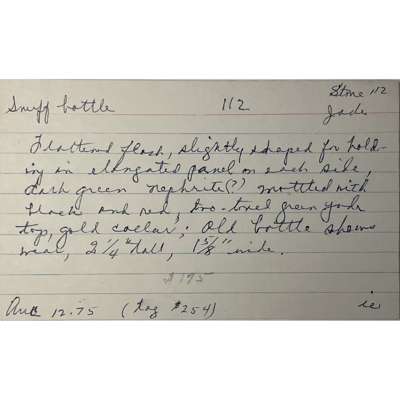 Stone 112
Snuff bottle 112 Jade
Flattened flask, slightly shaped for hold-
ing in elongated panel on each side,
dark green nephrite(?) mottled with
black and red, two-toned green jade
top, gold collar; Old bottle shows
wear, 2 1/4" tall, 1 5/8" wide.
$195
12.75 (tag #254)